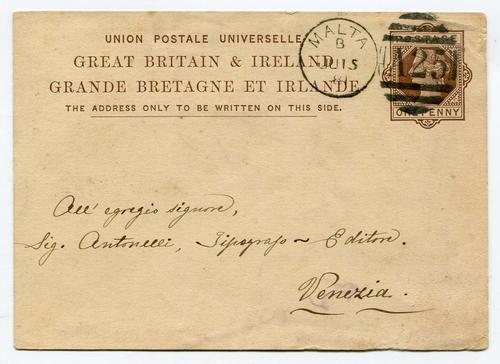 UNION POSTALE UNIVERSELLE
GREAT BRITAIN & IRELAND
GRANDE BRETAGNE ET IRLANDE
THE ADDRESS ONLY TO BE WRITTEN ON THIS SIDE.
MALTA
B
JU 15
A25
ONE PENNY
All' egregio signore,
Sig. Antonelli, Tipografo - Editore.
Venezia.